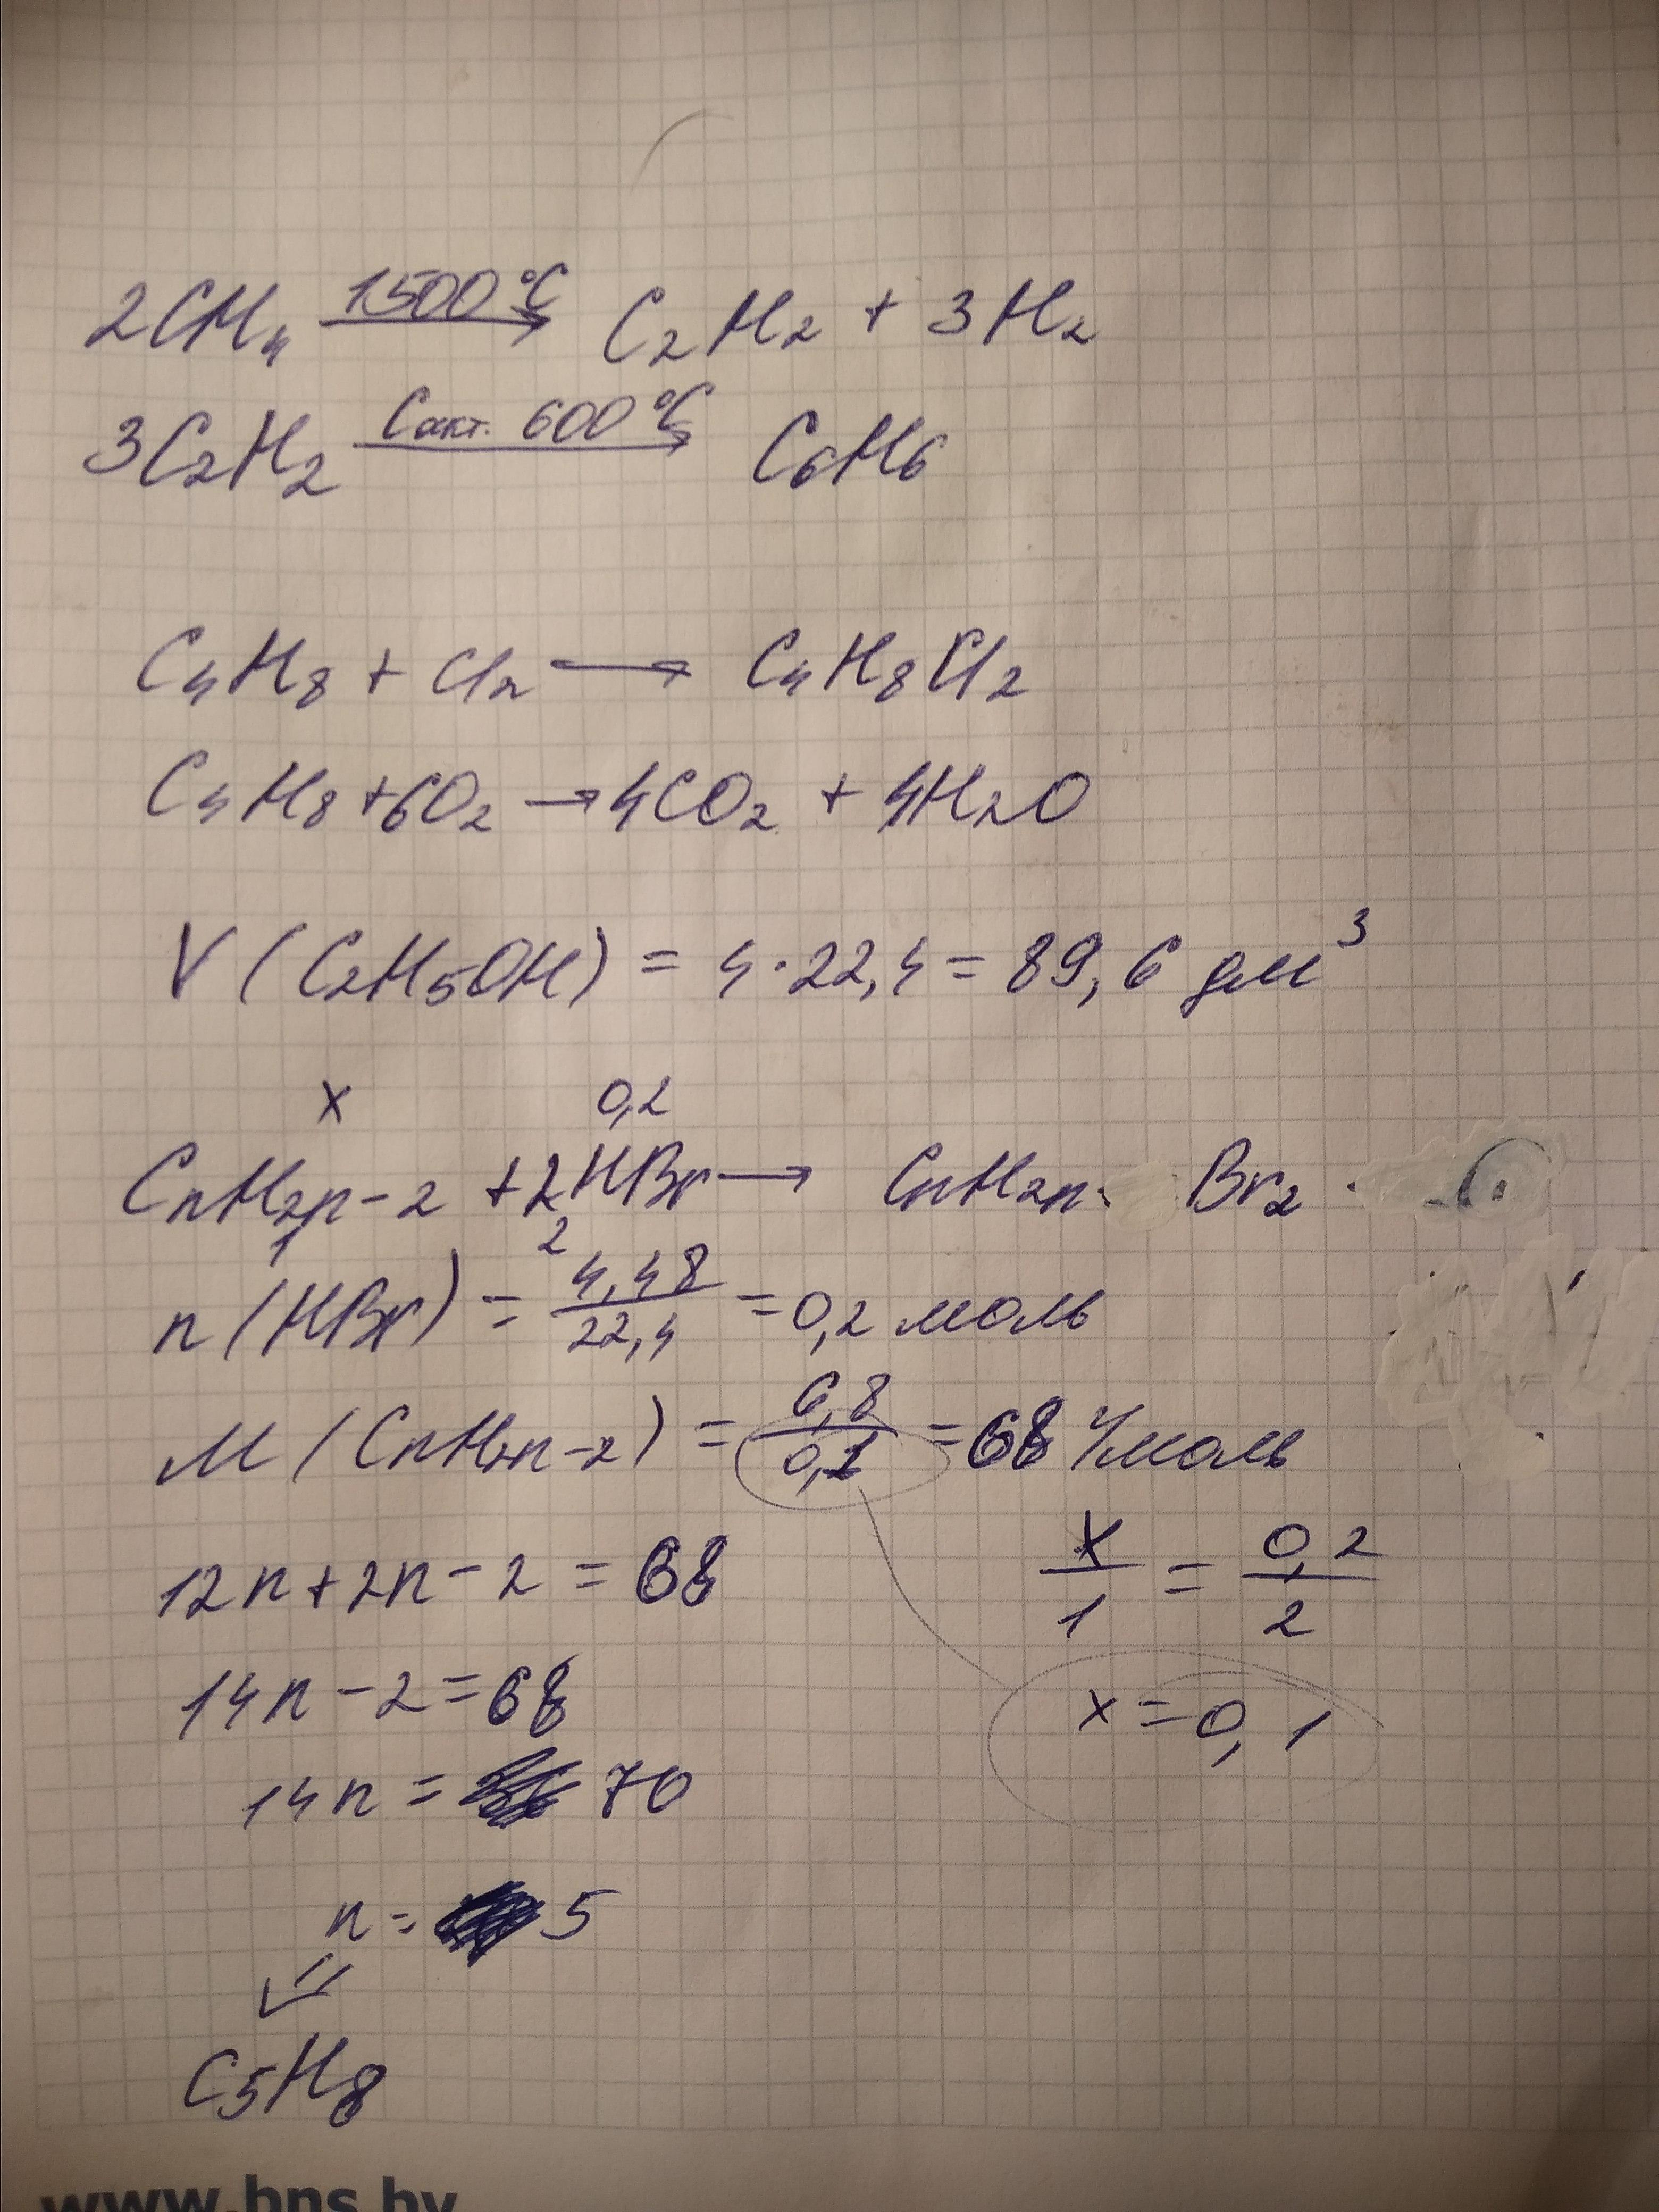 2CH₄ 1500 °C → C₂H₂ + 3H₂
3C₂H₂ Cакт. 600 °C → C₆H₆
C₄H₈ + Cl₂ → C₄H₈Cl₂
C₄H₈ + 6O₂ → 4CO₂ + 4H₂O
V (C₂H₅OH) = 4 · 22,4 = 89,6 дм³
x 0,2
CnH2n-2 + 2HBr → CnH2n Br₂
1 2
n (HBr) = 4,48/22,4 = 0,2 моль
M (CnH2n-2) = 6,8/0,1 = 68 г/моль
12n + 2n - 2 = 68
x/1 = 0,2/2
14n - 2 = 68
x = 0,1
14n = 70
n = 5
C₅H₈
www.bns.by